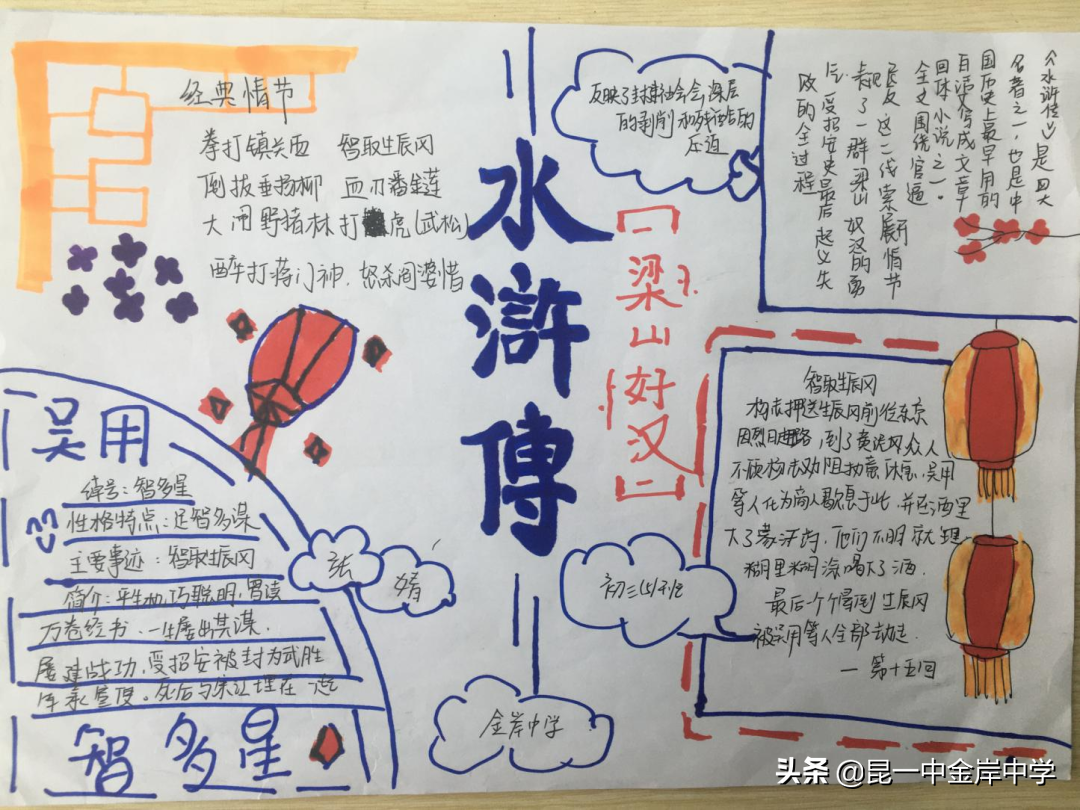 经典情节
拳打镇关西 智取生辰冈
倒拔垂杨柳 血刃潘金莲
大闹野猪林 打虎(武松)
醉打蒋门神. 怒杀阎婆惜
水
浒
傳
【梁山好汉】
反映了封建社会会深层
的剥削和残酷的
压迫
《水浒传》是四大
名著之一,也是中
国历史上最早用的
白话文写成文章
回体小说之一。
全文围绕官逼
民反这一线索展开情节
表现了一群梁山好汉的
受招安史最后起义失
败的全过程
智取生辰冈
杨志押送生辰冈前往东京
因烈日,到了黄泥冈众人
不顾杨志劝阻休息,吴用
等人化为商人歇息于此,并在酒里
下了蒙汗药,他们不明就理
糊里糊涂喝下了酒.
最后个个晕倒生辰冈
被吴用等人全部劫走.
— 第十五回
吴用
绰号:智多星
性格特点:足智多谋
主要事迹:智取生辰冈
简介:平生机巧聪明,曾读
万卷经书.一生屡出其谋.
屡建战功,受招安被封为武胜
军承宣使。死后与宋江埋在一起
智多星
张
婧
初三
金岸中学
头条@昆一中金岸中学